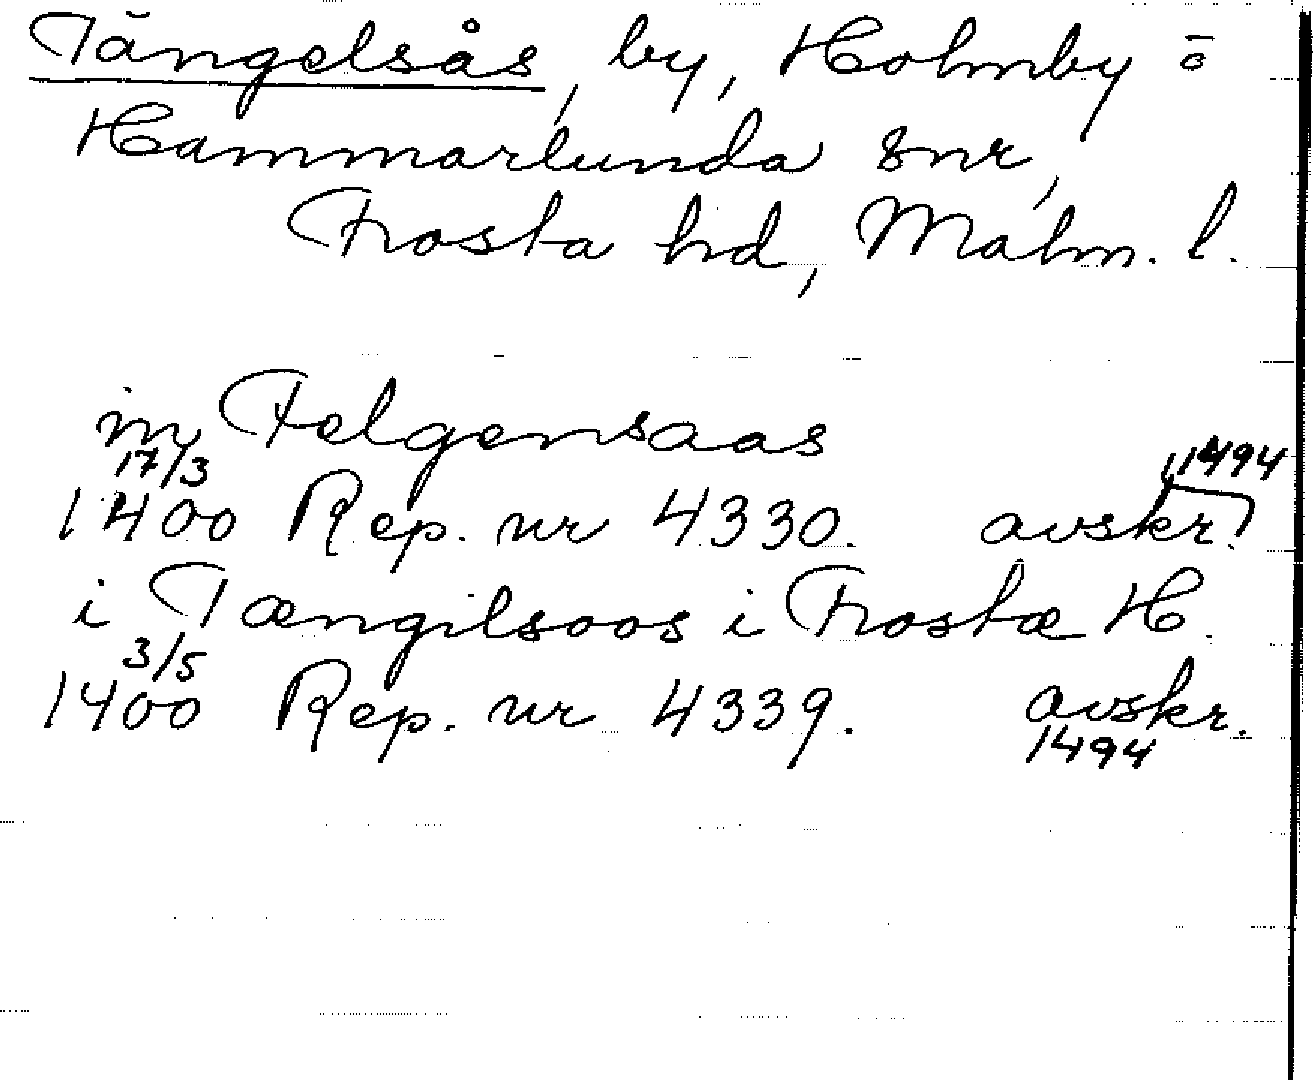 Tängelsås, by, Holmby o
Hammarlunda snr,
Frosta hd, Malm. l.
in Telgensaas
17/3 1494
1400 Rep. nr 4330. avskr.
i Tængilsoos i Frostæ H.
3/5
1400 Rep. nr 4339. avskr.
1494